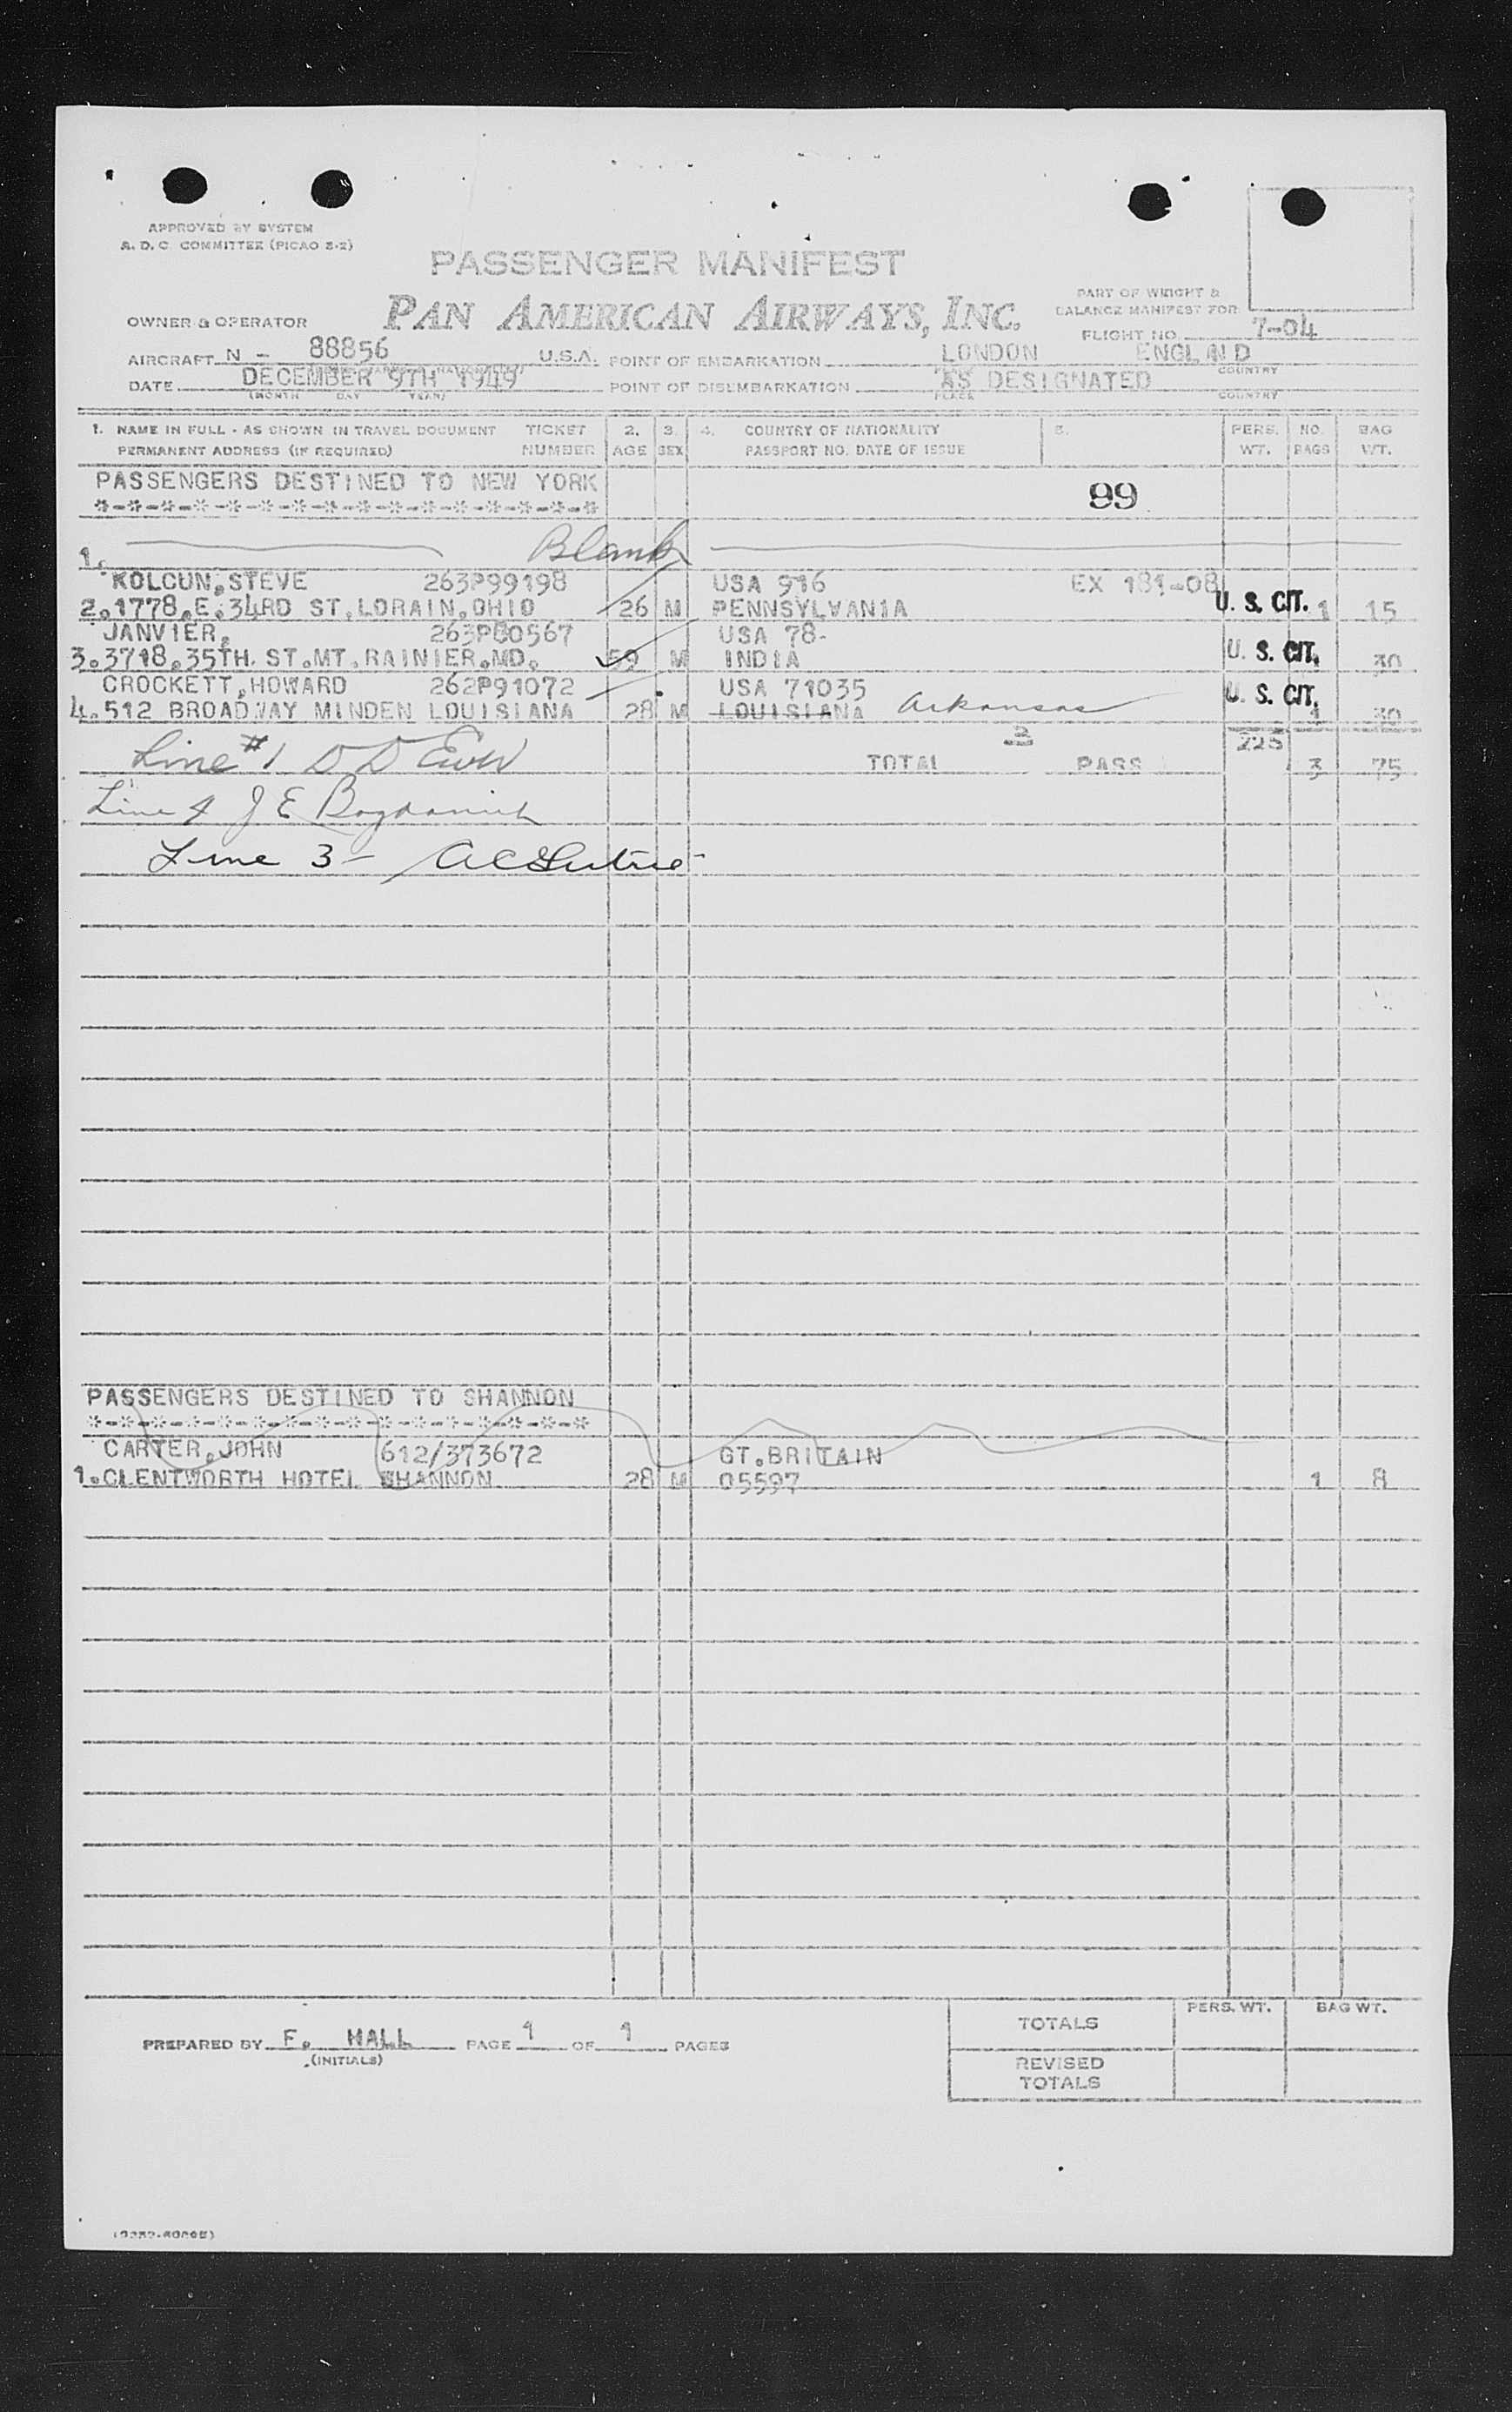 APPROVED BY SYSTEM
A. D. C. COMMITTEE (PICAO 3-2)
PASSENGER MANIFEST
PAN AMERICAN AIRWAYS, INC.
PART OF WEIGHT &
BALANCE MANIFEST FOR
OWNER & OPERATOR
FLIGHT NO. 7-04
AIRCRAFT N - 88856 U.S.A. POINT OF EMBARKATION LONDON ENGLAND
COUNTRY
DATE DECEMBER 9TH 1949 POINT OF DISEMBARKATION AS DESIGNATED
(MONTH DAY YEAR) PLACE COUNTRY
1. NAME IN FULL - AS SHOWN IN TRAVEL DOCUMENT TICKET 2. 3. 4. COUNTRY OF NATIONALITY 5. PERS. NO. BAG
PERMANENT ADDRESS (IF REQUIRED) NUMBER AGE SEX PASSPORT NO. DATE OF ISSUE WT. BAGS WT.
PASSENGERS DESTINED TO NEW YORK
99
*-*-*-*-*-*-*-*-*-*-*-*-*-*-*-*
1. Blank
KOLCUN,STEVE 263P99198 USA 916 EX 181-08
2.1778.E.34RD ST,LORAIN,OHIO 26 M PENNSYLVANIA U. S. CIT. 1 15
JANVIER, 263P00567 USA 78-
3.3718.35TH. ST.MT.RAINIER.MD. 59 M INDIA U. S. CIT. 30
CROCKETT,HOWARD 262P91072 USA 71035
4.512 BROADWAY MINDEN LOUISIANA 28 M LOUISIANA Arkansas U. S. CIT. 1 30
Line #1 D D
3 225
TOTAL PASS 3 75
Line 4 J E
Line 3 -
PASSENGERS DESTINED TO SHANNON
*-*-*-*-*-*-*-*-*-*-*-*-*-*-*-*
CARTER,JOHN 612/373672 GT.BRITAIN
1.CLENTWORTH HOTEL SHANNON 28 M 05597 1 8
PERS. WT. BAG WT.
TOTALS
PREPARED BY F. HALL PAGE 1 OF 1 PAGES
(INITIALS)
REVISED
TOTALS